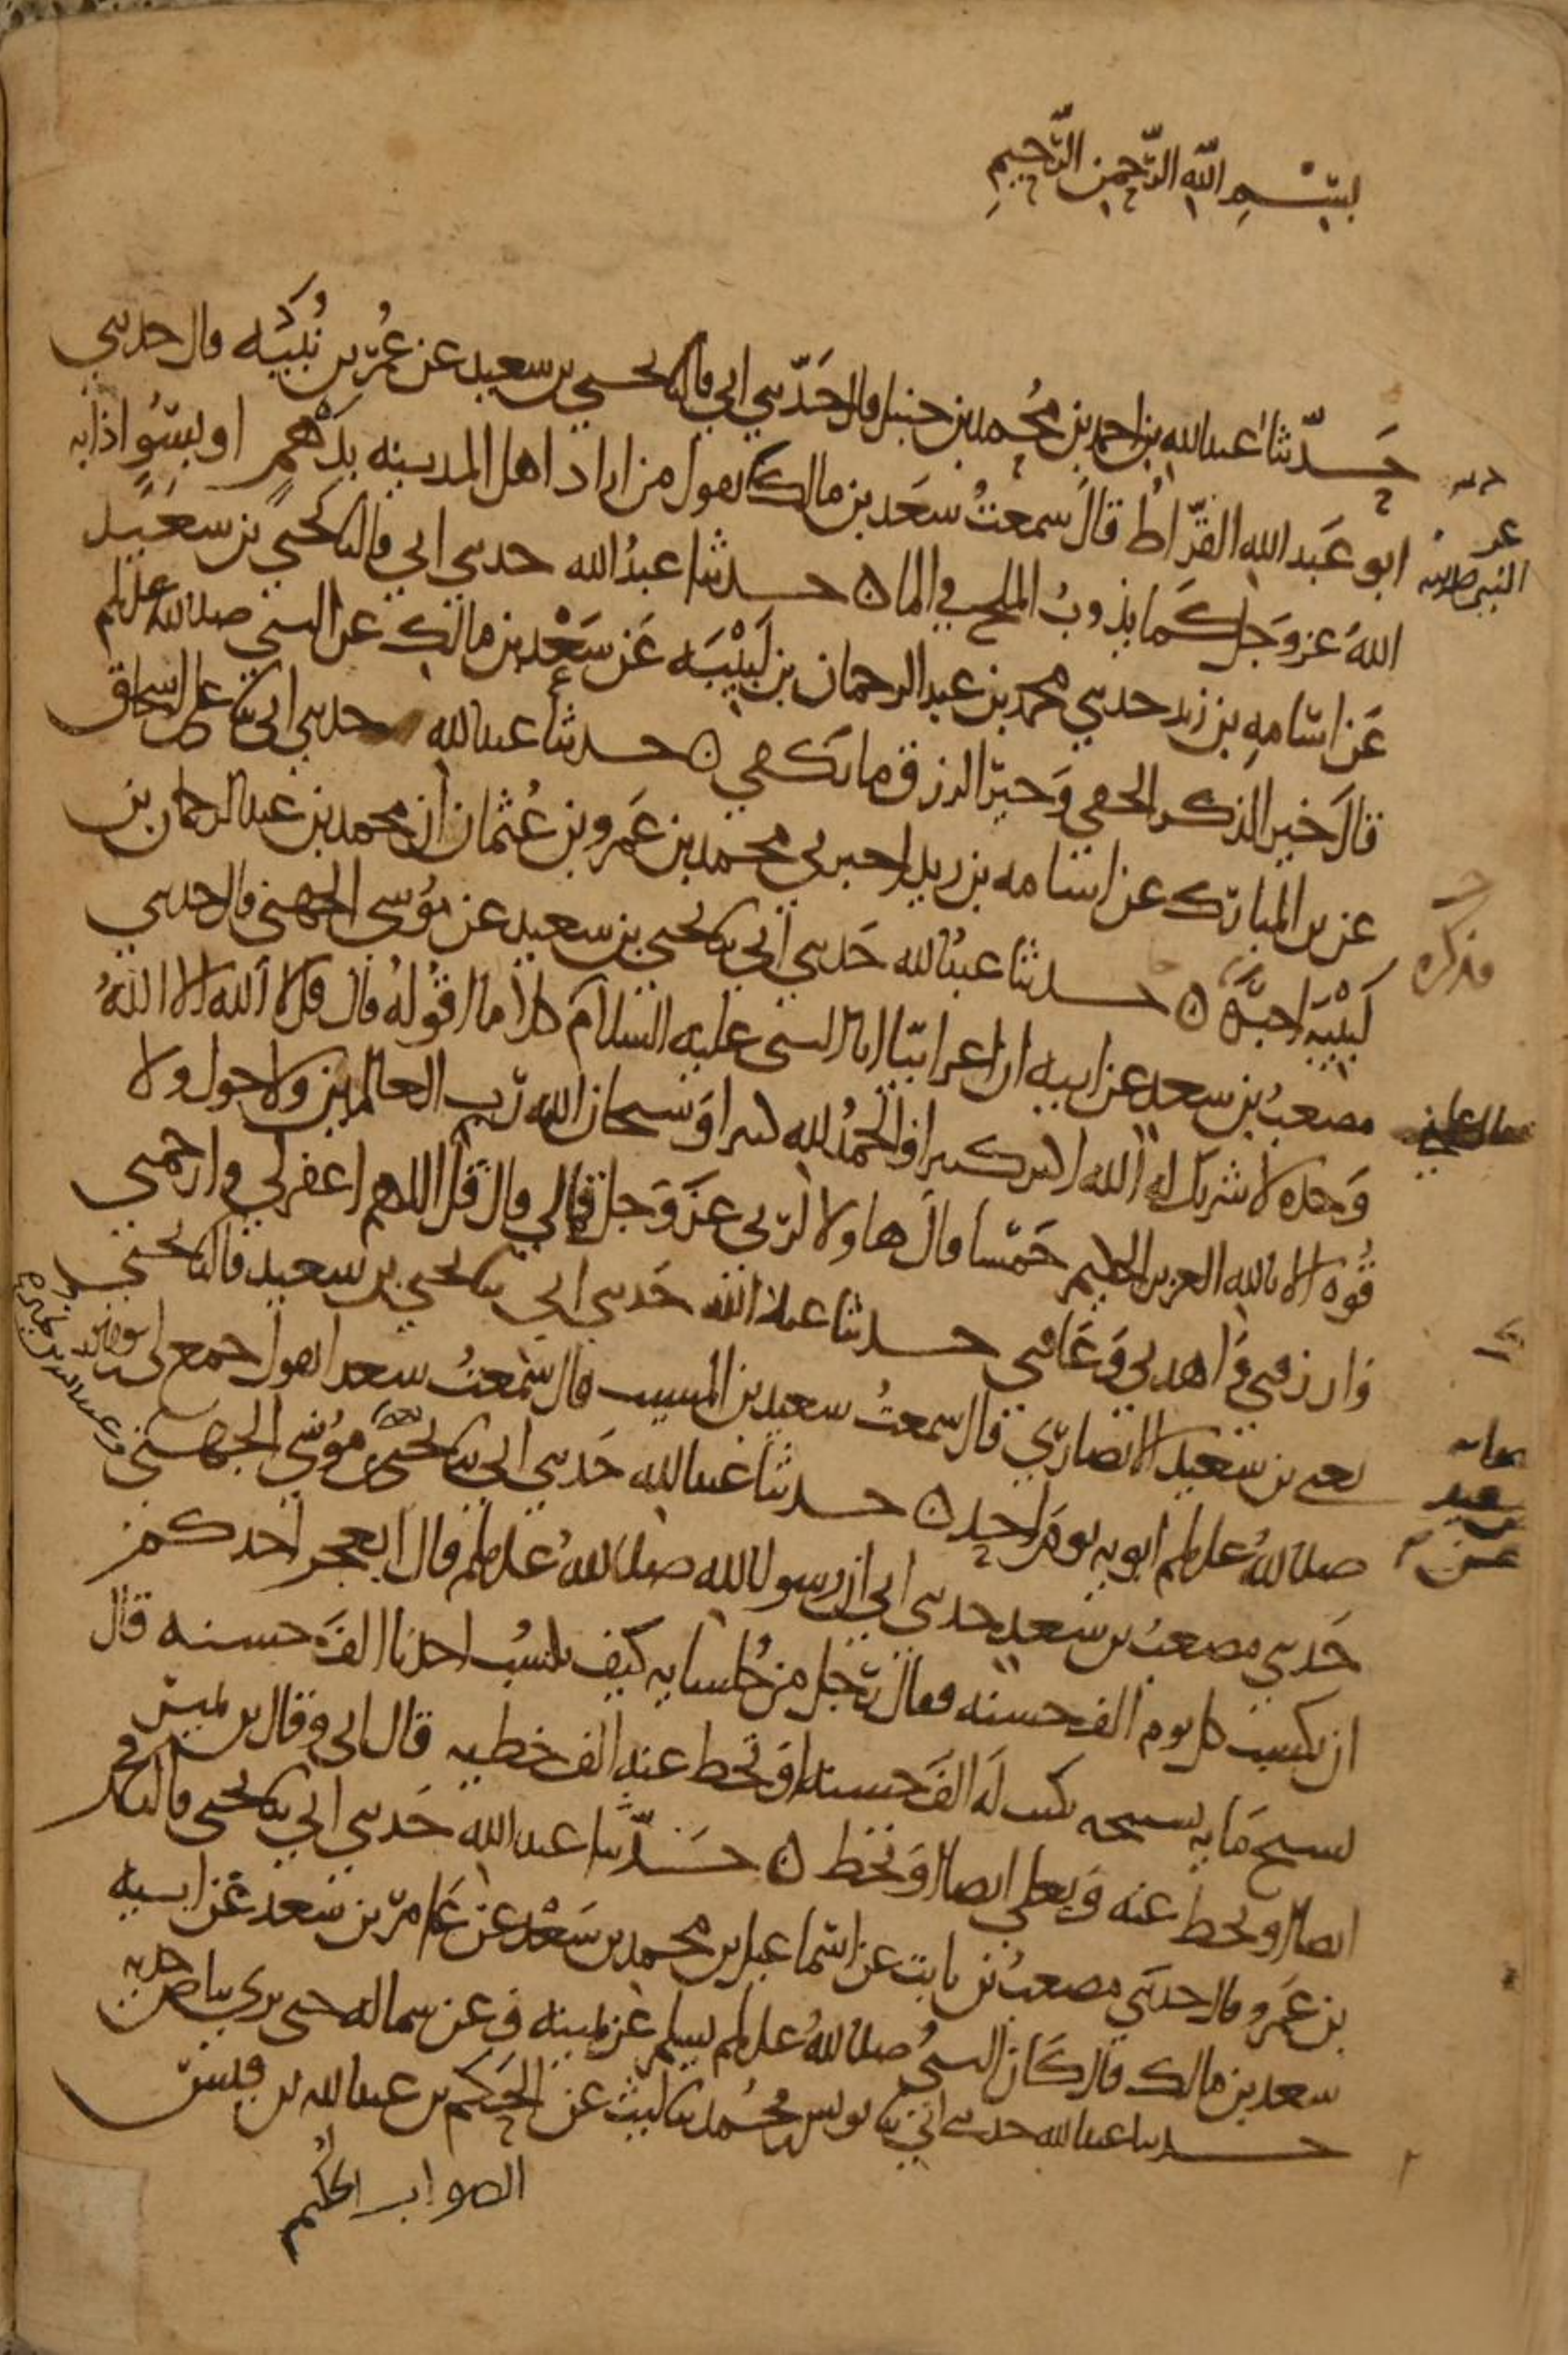 بسم الله الرحمن الرحيم
حدثنا عبدالله بن احمد بن محمد بن حنبل قال حدثني ابي قال ثنا يحيى بن سعيد عن عمر بن نبيه قال حدثني
ابو عبد الله القراظ قال سمعت سعد بن مالك يقول من اراد اهل المدينه بدهم او بسو اذابه
الله عز وجل كما يذوب الملح في الما ه حدثنا عبد الله حدثني ابي قال ثنا يحيى بن سعيد
عن اسامه بن زيد حدثني محمد بن عبد الرحمان بن لبيبه عن سعد بن مالك عن النبي صلى الله عليه وسلم
قال خير الذكر الخفي وخير الرزق ما يكفي ه حدثنا عبدالله حدثني ابي ثنا علي بن اسحاق
عن بن المبارك عن اسامه بن زيد اخبرني محمد بن عمرو بن عثمان ان محمد بن عبدالرحمان بن
لبيبه اخبره ه حدثنا عبدالله حدثني ابي ثنا يحيى بن سعيد عن موسى الجهني قال حدثني
مصعب بن سعد عن ابيه ان اعرابيا اتى النبي عليه السلام كلاما اقوله قال قل لا اله الا الله
وحده لا شريك له الله اكبر كبيرا والحمد لله كثيرا وسبحان الله رب العالمين ولا حول ولا
قوه الا بالله العزيز الحكيم خمسا قال هاولا لربي عز وجل فمالي قال قل اللهم اغفر لي وارحمني
وارزقني واهدني وعافني حدثنا عبد الله حدثني ابي ثنا يحيى بن سعيد قال ثنا يحيى
يعني بن سعيد الانصاري قال سمعت سعيد بن المسيب قال سمعت سعدا يقول جمع لي رسول الله
صلى الله عليه وسلم ابويه يوم احد ه حدثنا عبدالله حدثني ابي ثنا يحيى عن موسى الجهني
حدثني مصعب بن سعد حدثني ابي ان رسول الله صلى الله عليه وسلم قال ايعجز احدكم
ان يكسب كل يوم الف حسنه فقال رجل من جلسايه كيف يكسب احدنا الف حسنه قال
يسبح مايه تسبيحه يكتب له الف حسنه او تحط عنه الف خطيه قال ابي وقال بن نمير
ايضا او يحط عنه ويعلى ايضا او تحط ه حدثنا عبد الله حدثني ابي ثنا يحيى قال ثنا محمد
بن عمرو قال حدثني مصعب بن ثابت عن اسماعيل بن محمد بن سعد عن عامر بن سعد عن ابيه
سعد بن مالك قال كان النبي صلى الله عليه وسلم يسلم عن يمينه وعن شماله حتى يرى بياض خديه
حدثنا عبدالله حدثني ابي ثنا يونس بن محمد ثنا ليث عن الحكم بن عبدالله بن قيس
الصواب الحكيم
عن
النبي صلى الله عليه
فذكره
سعيد
عن